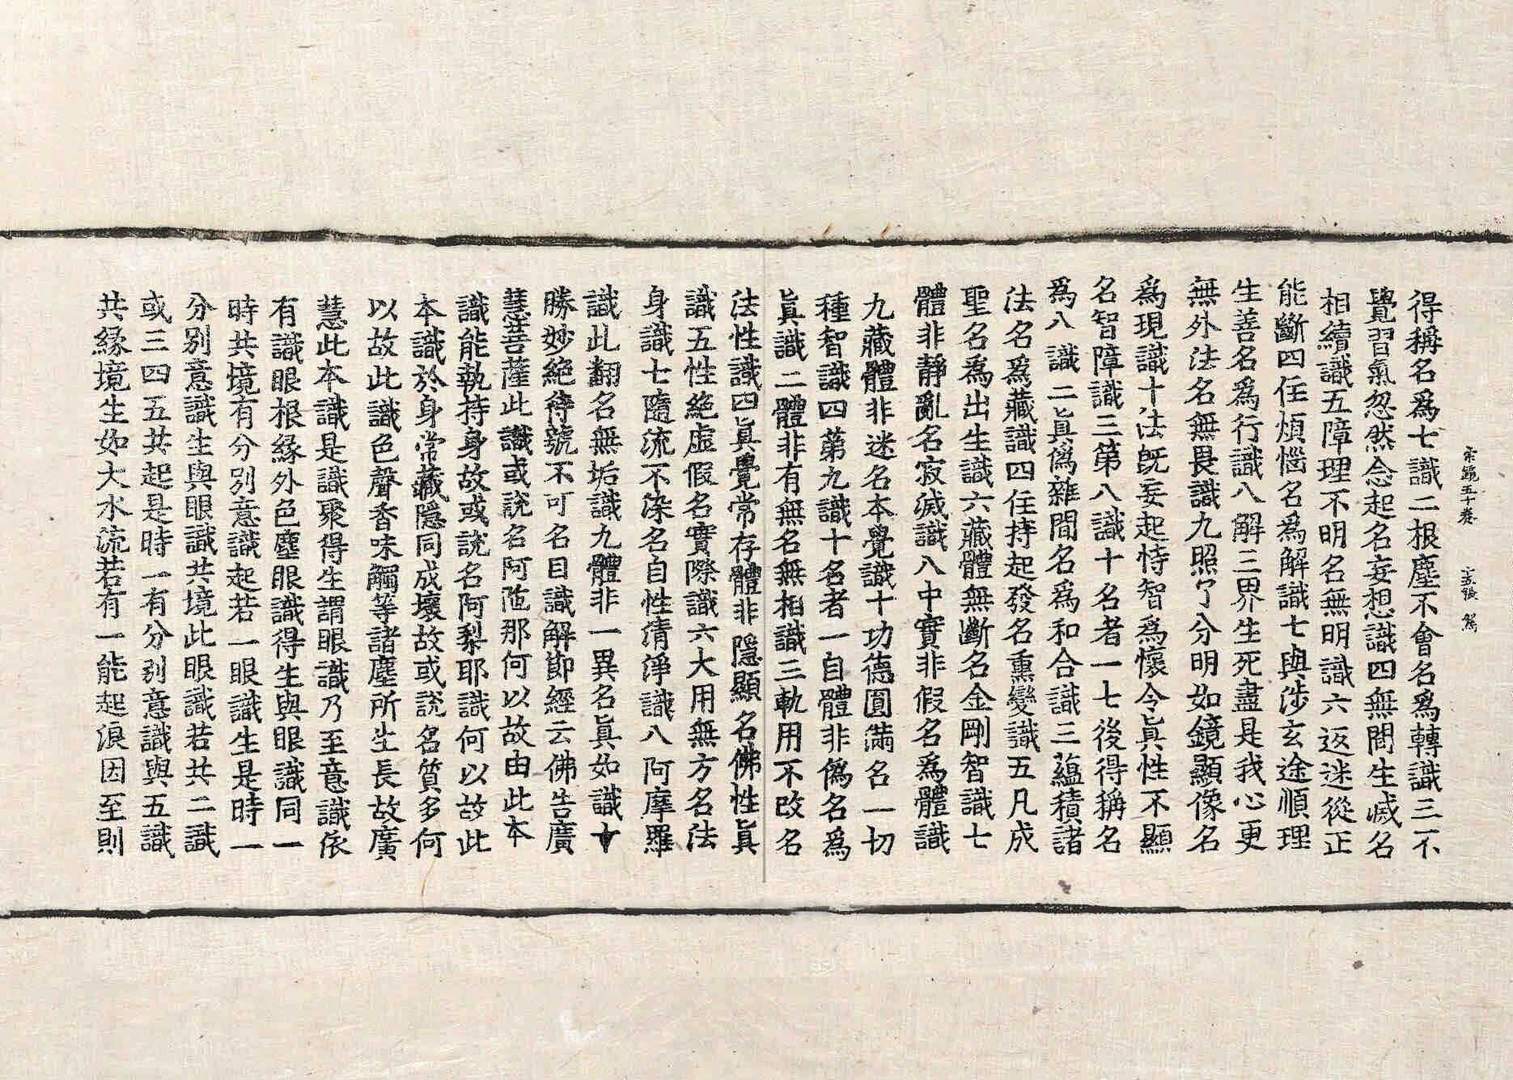 宗鏡五十卷 五張 駕
得稱名爲七識二根塵不會名爲轉識三不
覺習氣忽然念起名妄想識四無間生滅名
相續識五障理不明名無明識六返迷從正
能斷四任煩惱名爲解識七與涉玄途順理
生善名爲行識八解三界生死盡是我心更
無外法名無畏識九照了分明如鏡顯像名
爲現識十法旣妄起恃智爲懷令眞性不顯
名智障識三第八識十名者一七後得稱名
爲八識二眞僞雜間名爲和合識三蘊積諸
法名爲藏識四任持起發名熏變識五凡成
聖名爲出生識六藏體無斷名金剛智識七
體非靜亂名寂滅識八中實非假名爲體識
九藏體非迷名本覺識十功德圓滿名一切
種智識四第九識十名者一自體非僞名爲
眞識二體非有無名無相識三軌用不改名
法性識四眞覺常存體非隱顯名佛性眞
識五性絶虛假名實際識六大用無方名法
身識七隨流不染名自性清淨識八阿摩羅
識此翻名無垢識九體非一異名眞如識十
勝妙絶待號不可名目識解節經云佛告廣
慧菩薩此識或說名阿陁那何以故由此本
識能執持身故或說名阿梨耶識何以故此
本識於身常藏隱同成壞故或說名質多何
以故此識色聲香味觸等諸塵所生長故廣
慧此本識是識聚得生謂眼識乃至意識依
有識眼根緣外色塵眼識得生與眼識同一
時共境有分別意識起若一眼識生是時一
分別意識生與眼識共境此眼識若共二識
或三四五共起是時一有分別意識與五識
共緣境生如大水流若有一能起浪因至則